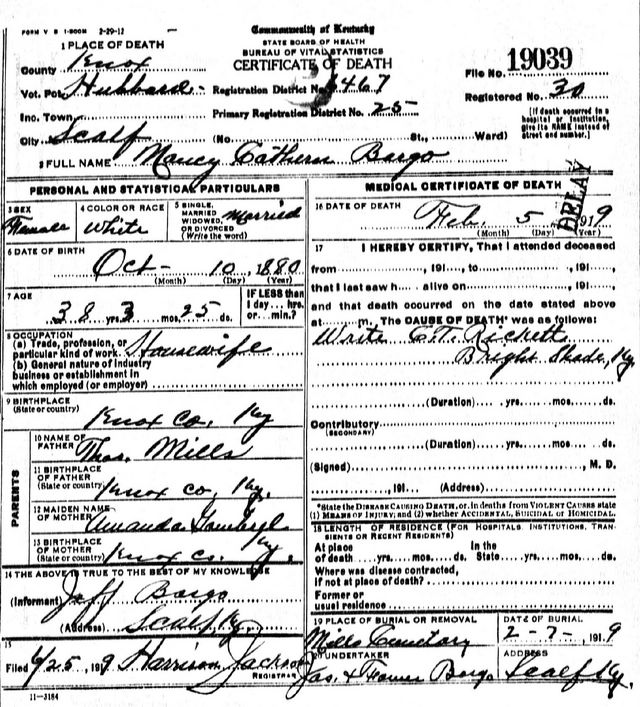 FORM V S 1-500M 2-29-12
Commonwealth of Kentucky
STATE BOARD OF HEALTH
BUREAU OF VITAL STATISTICS
CERTIFICATE OF DEATH
1 PLACE OF DEATH
County Knox
Vot. Pct. Hubbard
Inc. Town
City Scalf
Registration District No. 467
Primary Registration District No. 25
(No. St., Ward)
File No. 19039
Registered No. 30
[If death occurred in a hospital or institution, give its NAME instead of street and number.]
2 FULL NAME Nancy Cathern Bargo
PERSONAL AND STATISTICAL PARTICULARS
3 SEX Female
4 COLOR OR RACE White
5 SINGLE, MARRIED WIDOWED, OR DIVORCED (Write the word) Married
6 DATE OF BIRTH
Oct- 10, 1880
(Month) (Day) (Year)
7 AGE
38 yrs. 3 mos. 25 ds.
IF LESS than 1 day... hrs. or min.?
8 OCCUPATION
(a) Trade, profession, or particular kind of work. Housewife
(b) General nature of industry
business or establishment in
which employed (or employer)
9 BIRTHPLACE
(State or country) Knox Co. Ky
PARENTS
10 NAME OF FATHER Thos. Mills
11 BIRTHPLACE OF FATHER (State or country) Knox Co, Ky.
12 MAIDEN NAME OF MOTHER Amanda
13 BIRTHPLACE OF MOTHER (State or country) Knox Co. Ky.
14 THE ABOVE IS TRUE TO THE BEST OF MY KNOWLEDGE
(Informant) Jeff Bargo
(Address) Scalf, Ky.
15
Filed 6/25, 1919 Harrison Jackson
REGISTRAR
11-3184
MEDICAL CERTIFICATE OF DEATH
16 DATE OF DEATH
DELAY
Feb. 5 1919
(Month) (Day) (Year)
17 I HEREBY CERTIFY, That I attended deceased
from , 191 , to , 191 ,
that I last saw h alive on , 191 ,
and that death occurred on the date stated above
at m. The CAUSE OF DEATH* was as follows:
Write C.T. Rickett
Bright Shade, Ky.
(Duration) yrs. mos. ds.
Contributory
(SECONDARY)
(Duration) yrs. mos. ds.
(Signed) , M. D.
, 191 (Address)
*State the DISEASE CAUSING DEATH, or, in deaths from VIOLENT CAUSES state
(1) MEANS OF INJURY; and (2) whether ACCIDENTAL, SUICIDAL or HOMICIDAL.
18 LENGTH OF RESIDENCE (FOR HOSPITALS, INSTITUTIONS, TRANSIENTS OR RECENT RESIDENTS)
At place of death yrs. mos. ds. In the State yrs. mos. ds.
Where was disease contracted,
if not at place of death?
Former or
usual residence
19 PLACE OF BURIAL OR REMOVAL
Mills Cemetery
DATE OF BURIAL
2-7-1919
20 UNDERTAKER
Jas. & Bargo
ADDRESS
Scalf Ky.